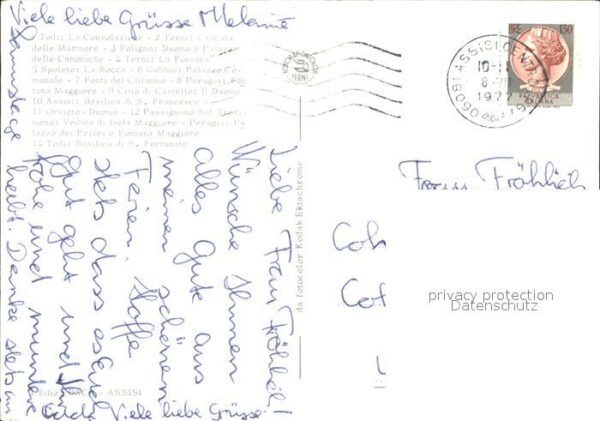 Viele liebe Grüsse Melanie
1 Todi: La Consolazione - 2 Terni: Cascata
delle Marmore - 3 Foligno: Duomo e Palazzo
delle Canoniche - 4 Terni: La Fontana
5 Spoleto: La Rocca - 6 Gubbio: Palazzo Co-
munale - 7 Fonti del Clitunno - 8 Perugia: Fon
tana Maggiore - 9 Città di Castello: Il Duomo
10 Assisi: Basilica di S. Francesco
11 Orvieto: Duomo - 12 Passignano Sul Trasi-
meno: Veduta di Isola Maggiore - Perugia: Pa-
lazzo dei Priori e Fontana Maggiore
14 Todi: Basilica di S. Fortunato
Liebe Frau Fröhlich!
Wünsche Ihnen
alles Gute aus
meinen schönen
Ferien. Hoffe
stets dass es
gut geht und
frohe und munter
bleibt. Danke stets
Viele liebe Grüsse
da fotocolor Kodak Ektachrome
ASSISI
TERNI
150
ITALIANA
06081 ASSISI CENTRO
10-11
8-
1977
(PG)
Frau Fröhlich
privacy protection
Datenschutz